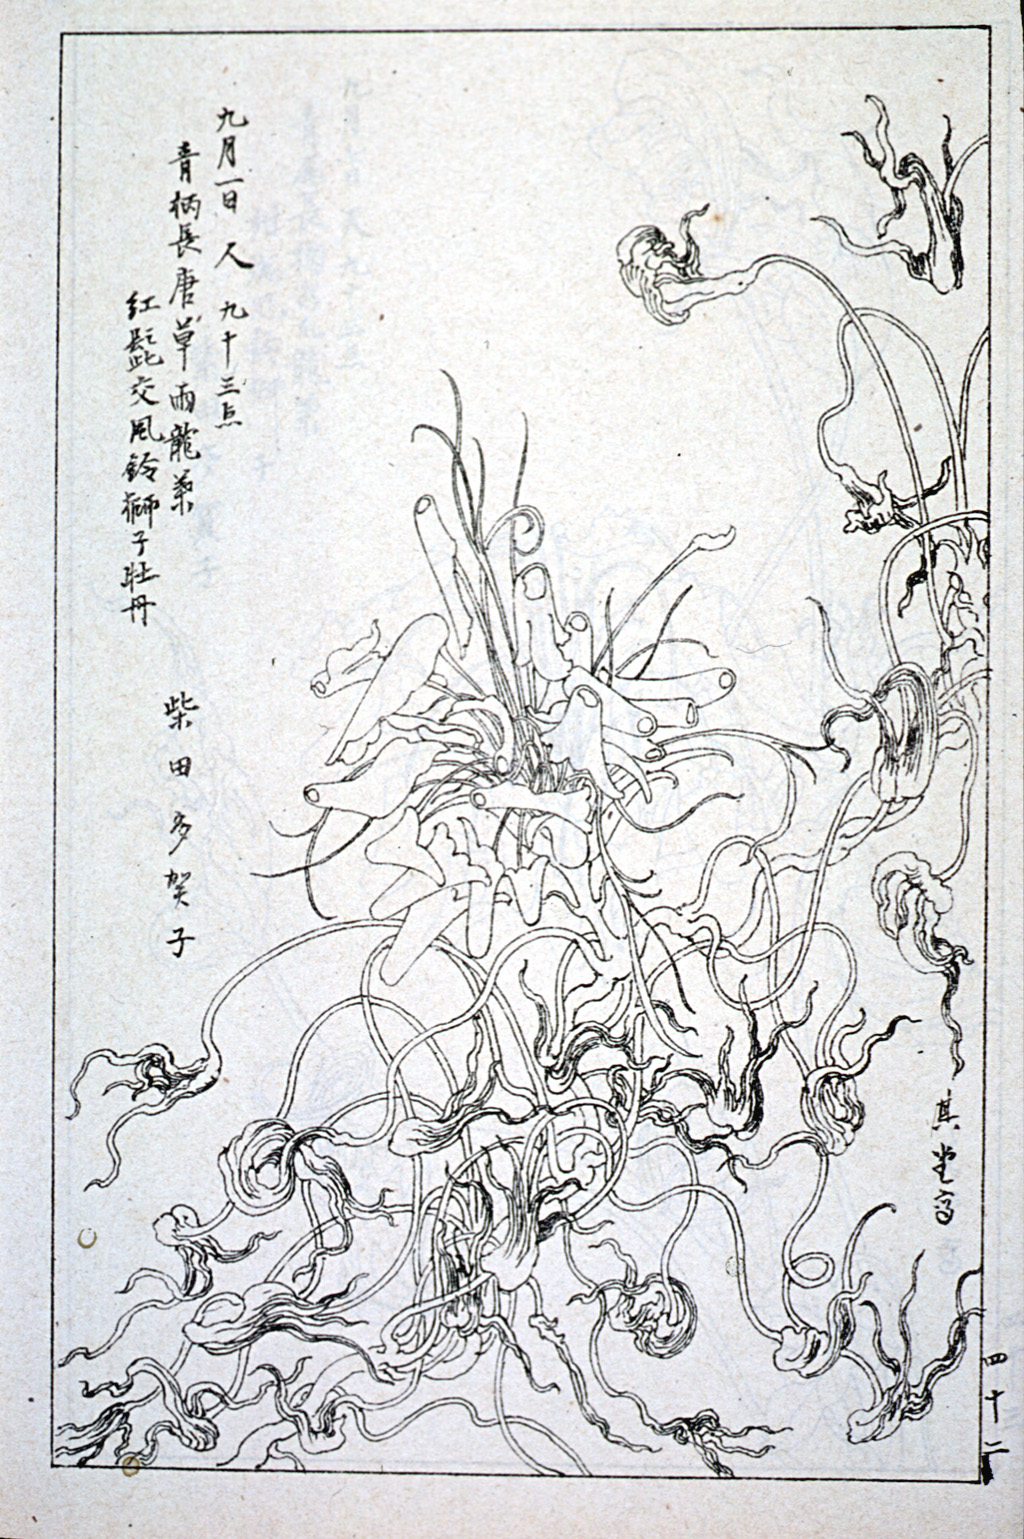 九月一日 人 九十三点
青柄長唐草雨龍葉
紅髭交風鈴獅子牡丹
柴田多賀子
其堂寫
四十二